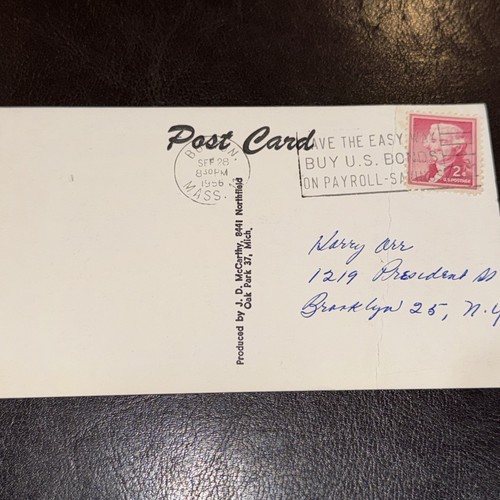 Post Card
BOSTON,
SEP 28
8:30 PM
1956
MASS.
SAVE THE EASY WAY
BUY U.S. BONDS
ON PAYROLL SAVINGS
2¢
U.S. POSTAGE
Produced by J. D. McCarthy, 8441 Northfield
Oak Park 37, Mich.
Harry Orr
1219 President St
Brooklyn 25, N.Y